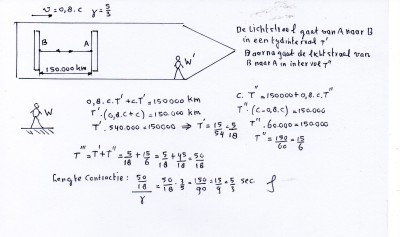 v = 0,8.c γ = 5/3
De Lichtstraal gaat van A naar B
in een tydinterval T'
B A
Daarna gaat de lichtstraal van
B naar A in interval T"
150.000 km
W'
W
0,8.c.T' + c.T' = 150000 km
T'.(0,8.c+c) = 150.000 km
T'.540.000 = 150000 ⇒ T' = 15/54 = 5/18
c.T" = 150000 + 0,8.c.T"
T".(c-0,8.c) = 150.000
T".60.000 = 150.000
T" = 150/60 = 15/6
T''' = T' + T" = 5/18 + 15/6 = 5/18 + 45/18 = 50/18
Lengte Contractie: 50/18 / γ = 50/18 . 3/5 = 150/90 = 15/9 = 5/3 sec